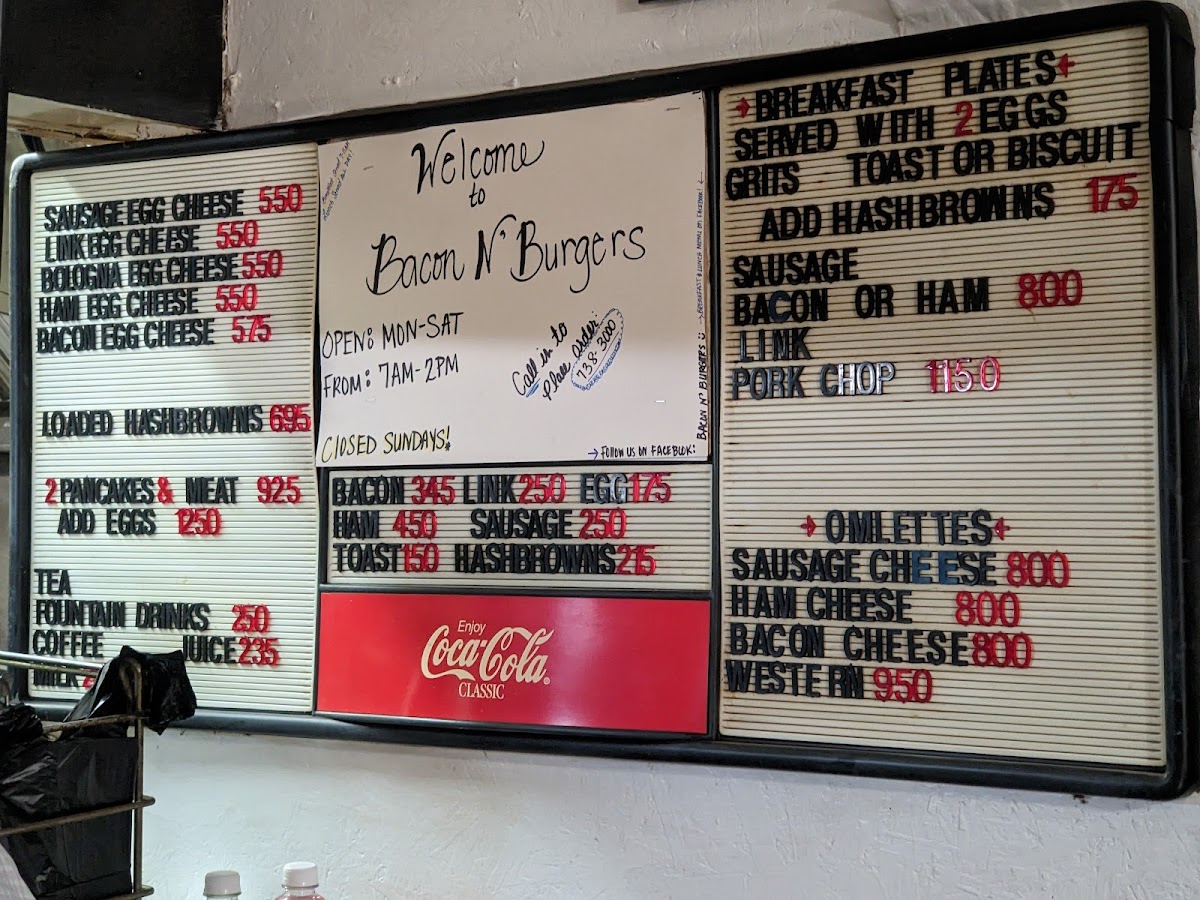 SAUSAGE EGG CHEESE 550
LINK EGG CHEESE 550
BOLOGNA EGG CHEESE 550
HAM EGG CHEESE 550
BACON EGG CHEESE 575
LOADED HASHBROWNS 695
2 PANCAKES & MEAT 925
ADD EGGS 1250
TEA
FOUNTAIN DRINKS 250
COFFEE JUICE 235
Welcome
to
Bacon N' Burgers
OPEN: MON-SAT
FROM: 7AM-2PM
CLOSED SUNDAYS!
Call in to
place order:
738-3000
→ FOLLOW US ON FACEBOOK:
BACON N' BURGERS
BACON 345 LINK 250 EGG 175
HAM 450 SAUSAGE 250
TOAST 150 HASHBROWNS 215
Enjoy
Coca-Cola®
CLASSIC
BREAKFAST PLATES
SERVED WITH 2 EGGS
GRITS TOAST OR BISCUIT
ADD HASHBROWNS 175
SAUSAGE
BACON OR HAM 800
LINK
PORK CHOP 1150
OMLETTES
SAUSAGE CHEESE 800
HAM CHEESE 800
BACON CHEESE 800
WESTERN 950